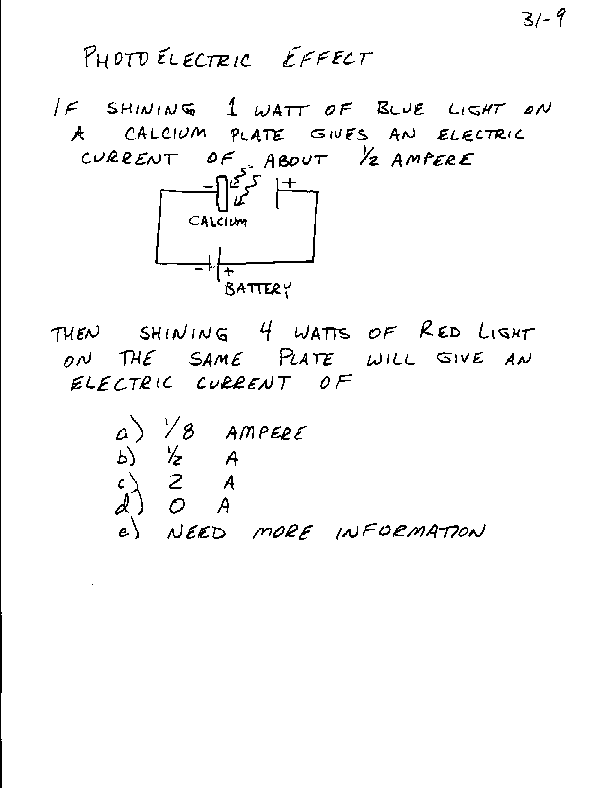 31-9
PHOTOELECTRIC EFFECT
IF SHINING 1 WATT OF BLUE LIGHT ON
A CALCIUM PLATE GIVES AN ELECTRIC
CURRENT OF ABOUT 1/2 AMPERE
- +
CALCIUM
- +
BATTERY
THEN SHINING 4 WATTS OF RED LIGHT
ON THE SAME PLATE WILL GIVE AN
ELECTRIC CURRENT OF
a) 1/8 AMPERE
b) 1/2 A
c) 2 A
d) 0 A
e) NEED MORE INFORMATION